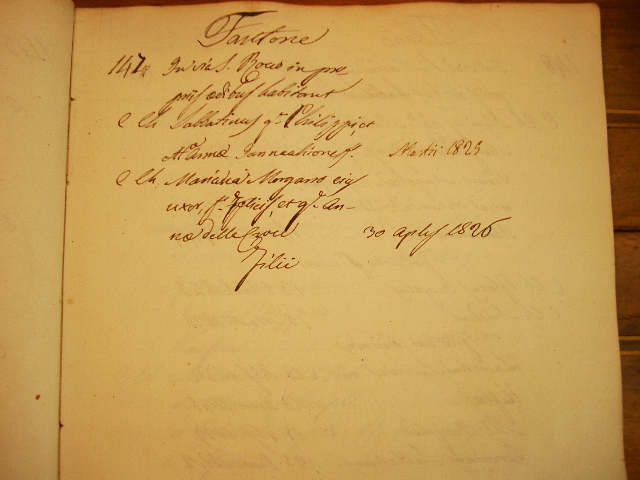 Faultone
147 In via S. Roco in pro
priis ædibus habitant
C Ch Sabbatinus qm Philippi, et
Mæ Annæ Iannacchione f. Martii 1825
C Ch Mariana Morgano eius
uxor, f. Felicis, et qm An-
næ delle Croci 30 Aplis 1826
Filii